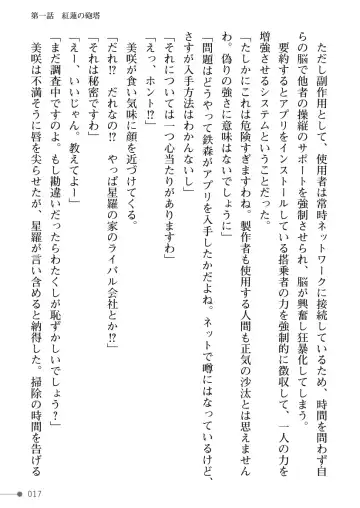 第一話　紅蓮の砲塔
　ただし副作用として、使用者は常時ネットワークに接続しているため、時間を問わず自
らの脳で他者の操縦のサポートを強制させられ、脳が興奮し狂暴化してしまう。
　要約するとアプリをインストールしている搭乗者の力を強制的に徴収して、一人の力を
増強させるシステムということだった。
「たしかにこれは危険すぎますわね。製作者も使用する人間も正気の沙汰とは思えません
わ。偽りの強さに意味はないでしょうに」
「問題はどうやって鉄森がアプリを入手したかだよね。ネットで噂にはなってるけど、
さすが入手方法はわかんないし」
「それについては一つ心当たりがありますわ」
「えっ、ホント!?」
　美咲が食い気味に顔を近づけてくる。
「だれ!?　だれなの!?　やっぱ星羅の家のライバル会社とか!?」
「それは秘密ですわ」
「えー、いいじゃん。教えてよー」
「まだ調査中ですのよ。もし勘違いだったらわたくしが恥ずかしいでしょう？」
　美咲は不満そうに唇を尖らせたが、星羅が言い含めると納得した。掃除の時間を告げる
017